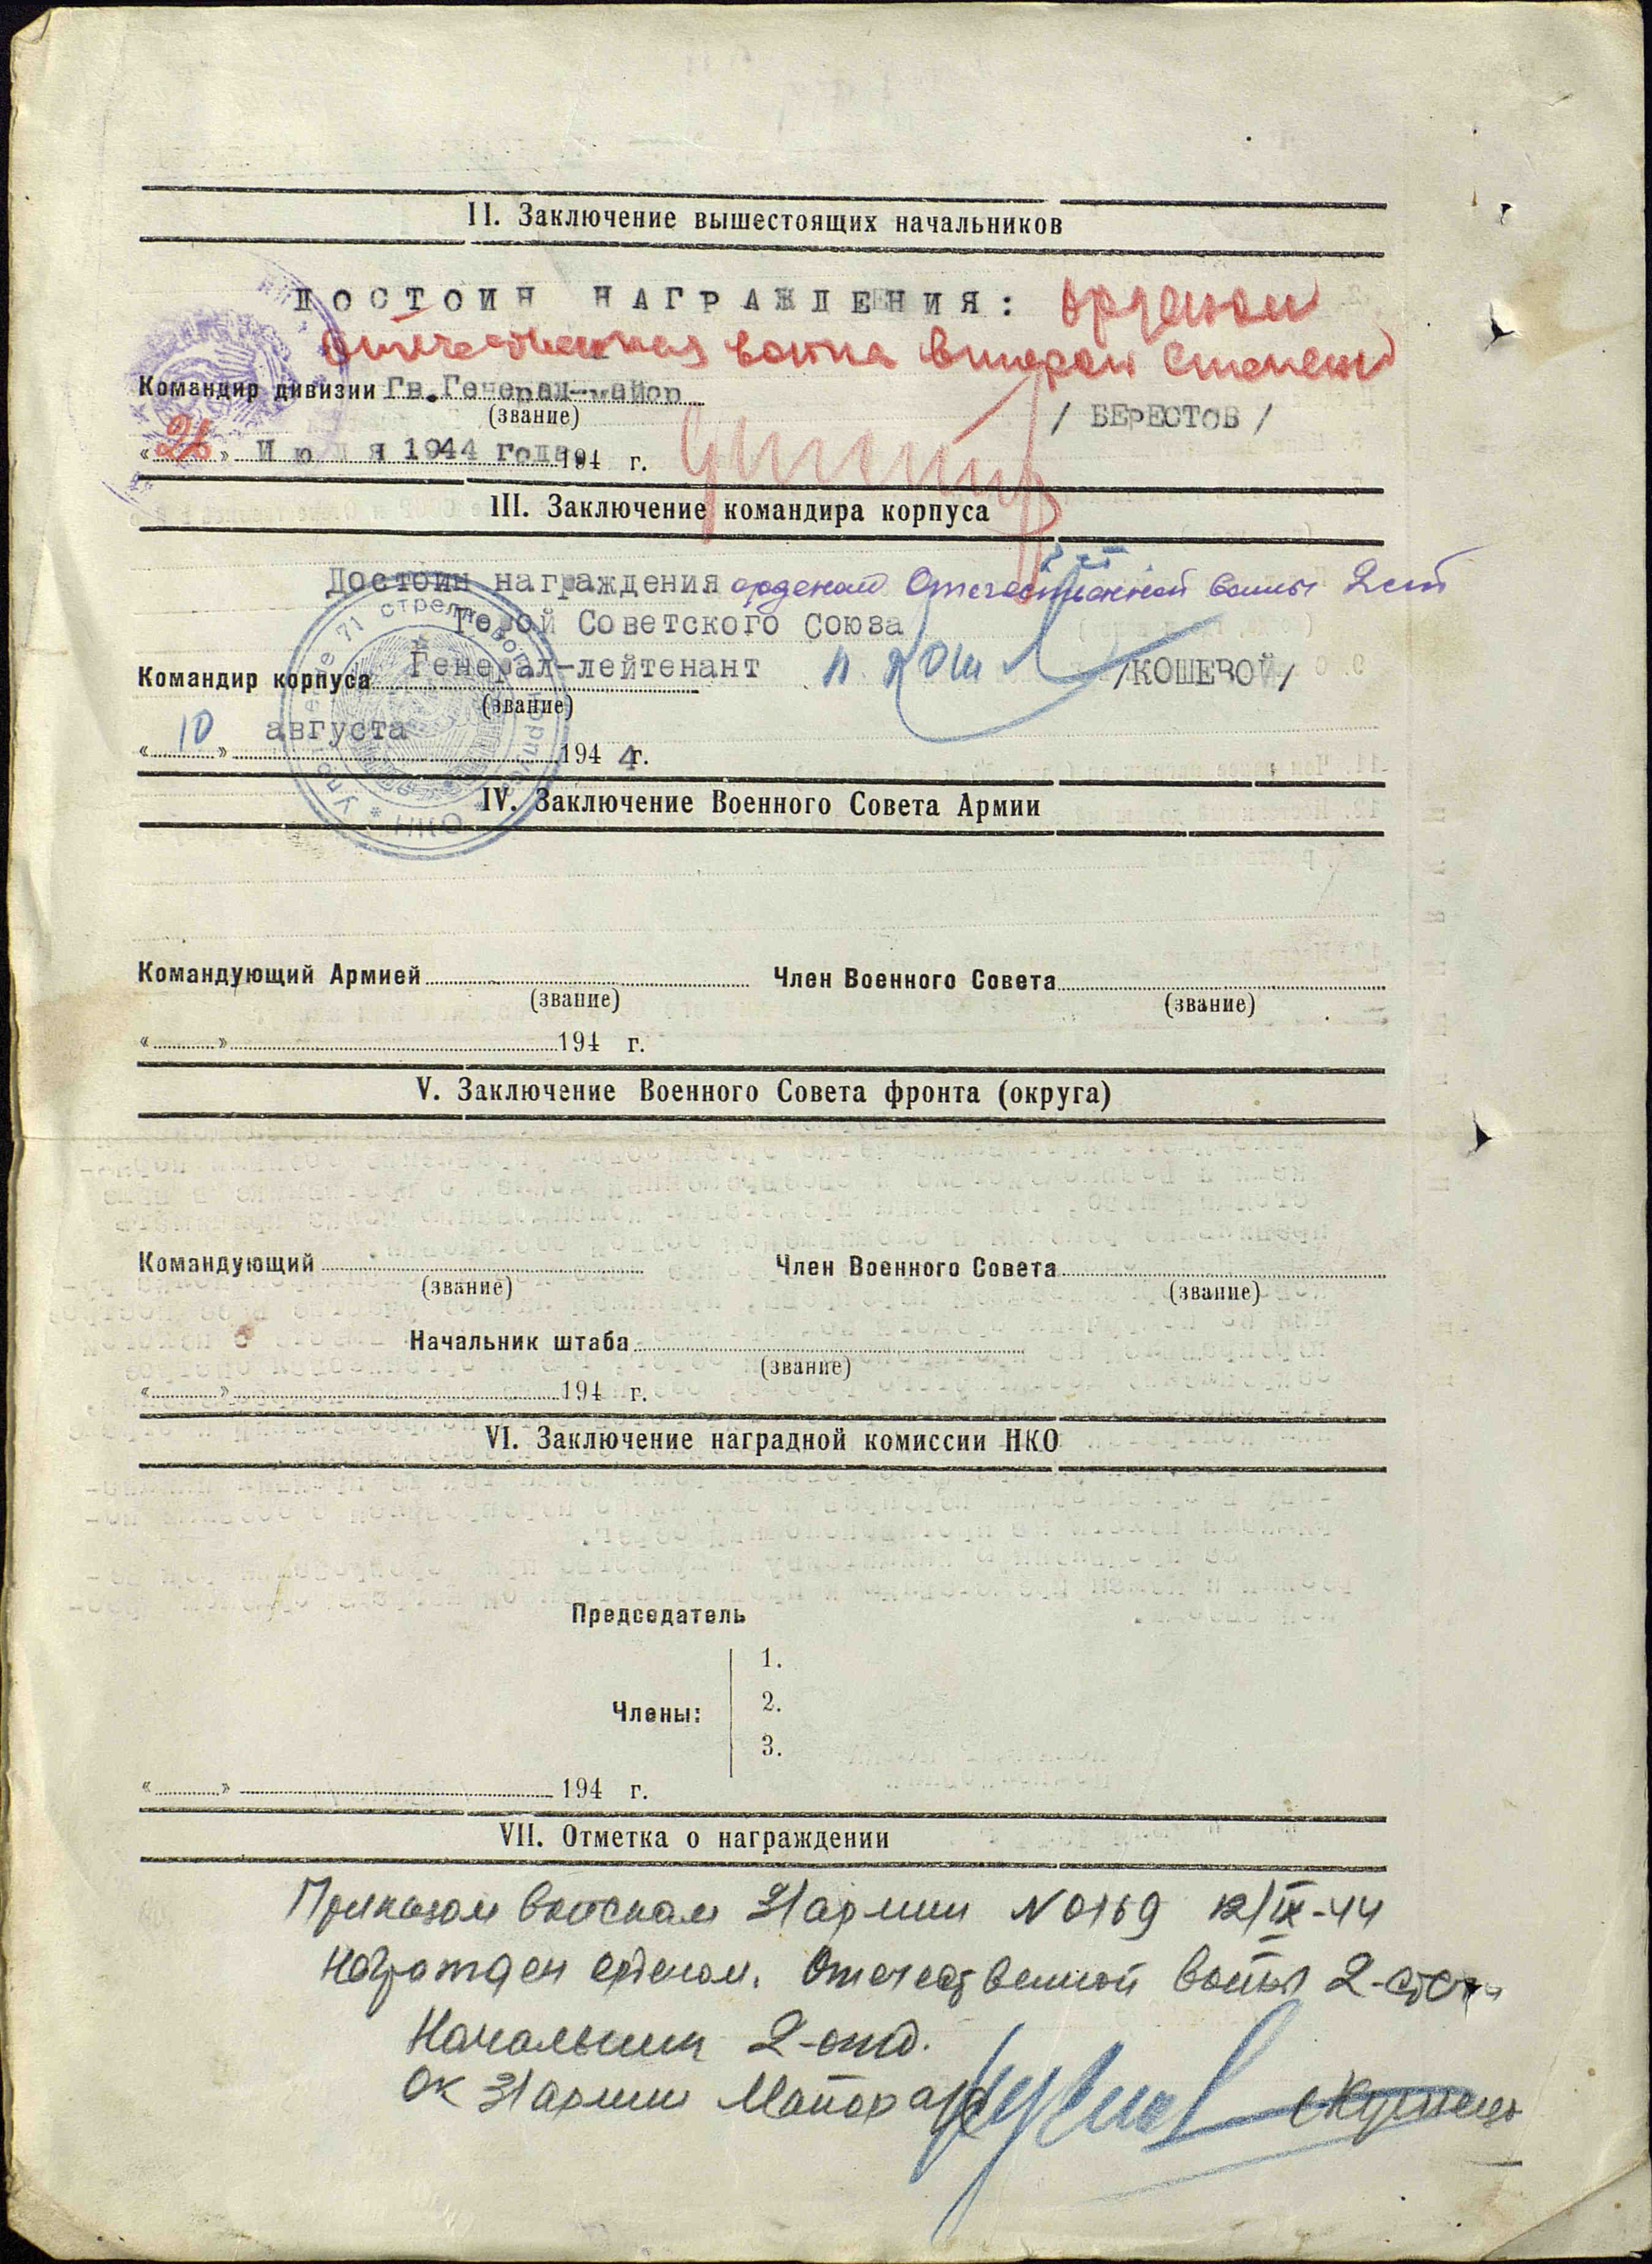 II. Заключение вышестоящих начальников
ДОСТОИН НАГРАЖДЕНИЯ: орденом
Отечественная война второй степени
Командир дивизии Гв.Генерал-майор
(звание)
/ БЕРЕСТОВ /
« 26 » Июля 1944 года. 194 г.
III. Заключение командира корпуса
Достоин награждения орденом Отечественной войны 2 ст
Герой Советского Союза
Командир корпуса Генерал-лейтенант /КОШЕВОЙ/
(звание)
« 10 » августа 194 4 г.
71 стрелкового
НКО
IV. Заключение Военного Совета Армии
Командующий Армией Член Военного Совета
(звание) (звание)
« » 194 г.
V. Заключение Военного Совета фронта (округа)
Командующий Член Военного Совета
(звание) (звание)
Начальник штаба
(звание)
« » 194 г.
VI. Заключение наградной комиссии НКО
Председатель
1.
Члены: 2.
3.
« » 194 г.
VII. Отметка о награждении
Приказом войскам 31 армии N 0169 12/IX-44
Награжден орденом. Отечественной войны 2-степ
Начальник 2-отд.
ОК 31 армии Майор а/с